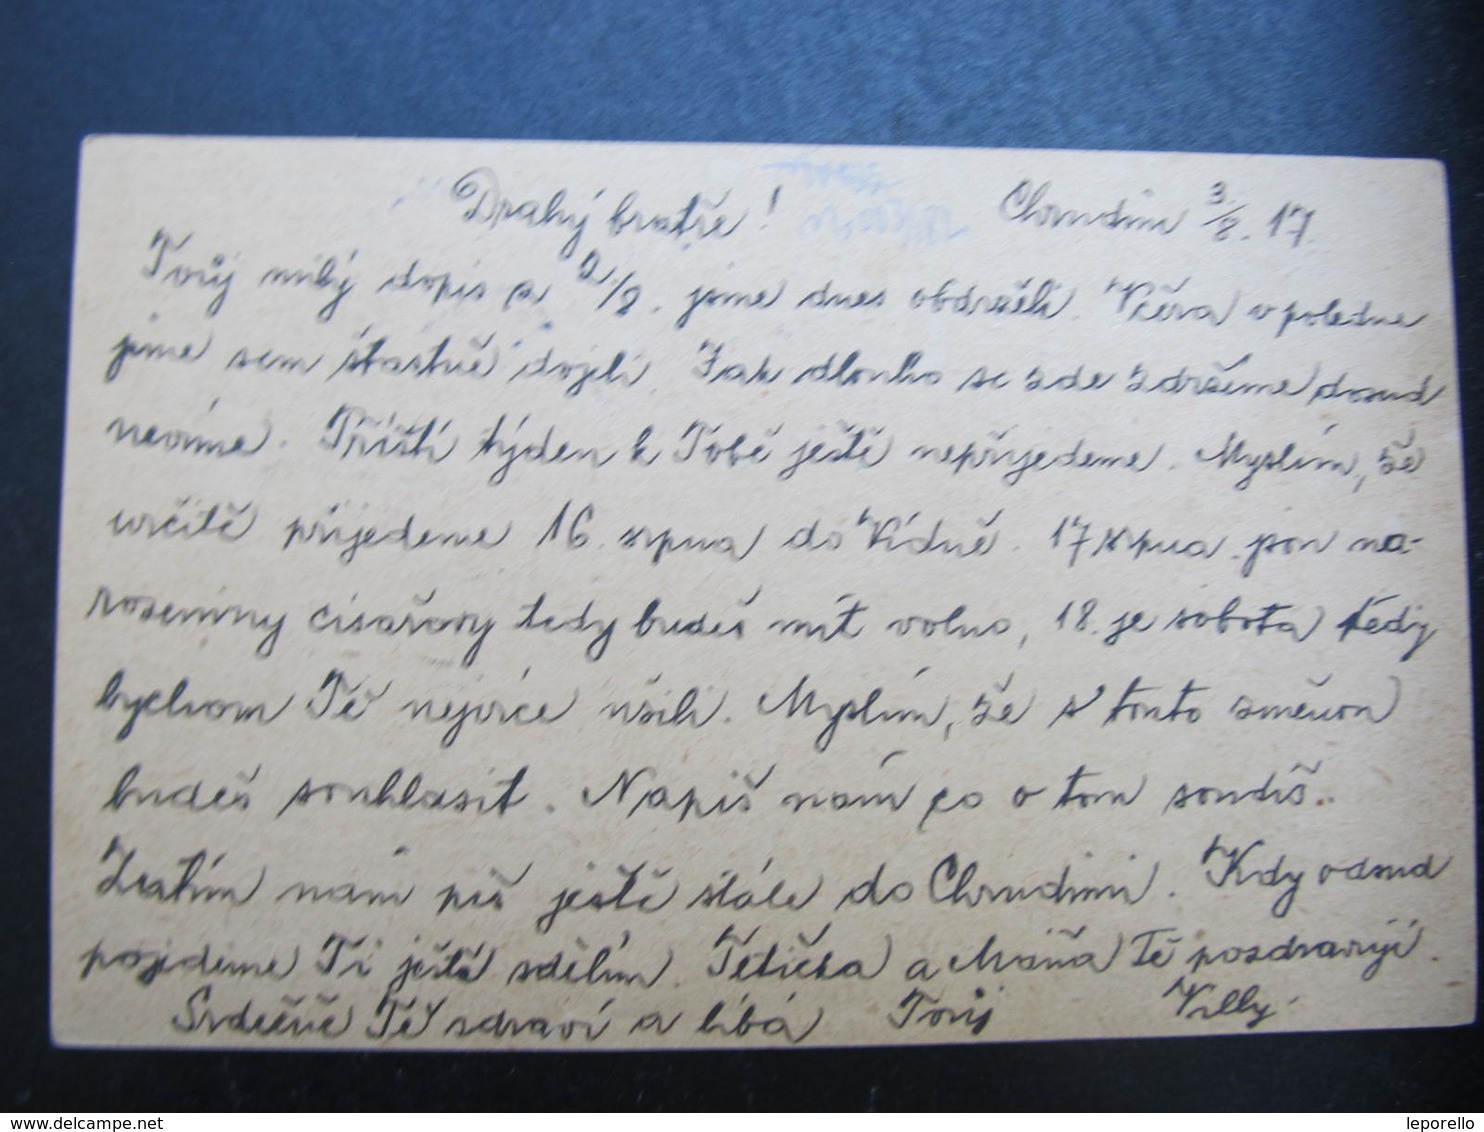 Drahý bratře! Chrudim 3/8. 17.
Tvůj milý dopis z 2/8. jsme dnes obdrželi. Včera v poledne
jsme sem šťastně dojeli. Jak dlouho se zde zdržíme dosud
nevíme. Příští týden k Tobě ještě nepřijedeme. Myslím, že
určitě přijedeme 16. srpna do Vídně. 17 srpna jsou na-
rozeniny císařovy tedy budeš mít volno, 18. je sobota tedy
bychom Tě nejvíce užili. Myslím, že s touto změnou
budeš souhlasit. Napiš nám co o tom soudíš.
Zatím nám piš ještě stále do Chrudimi. Kdy odsud
pojedeme Ti ještě sdělím. Tetička a Máňa Tě pozdravují.
Srdečně Tě zdraví a líbá Tvůj Villy.
delcampe.net
leporello